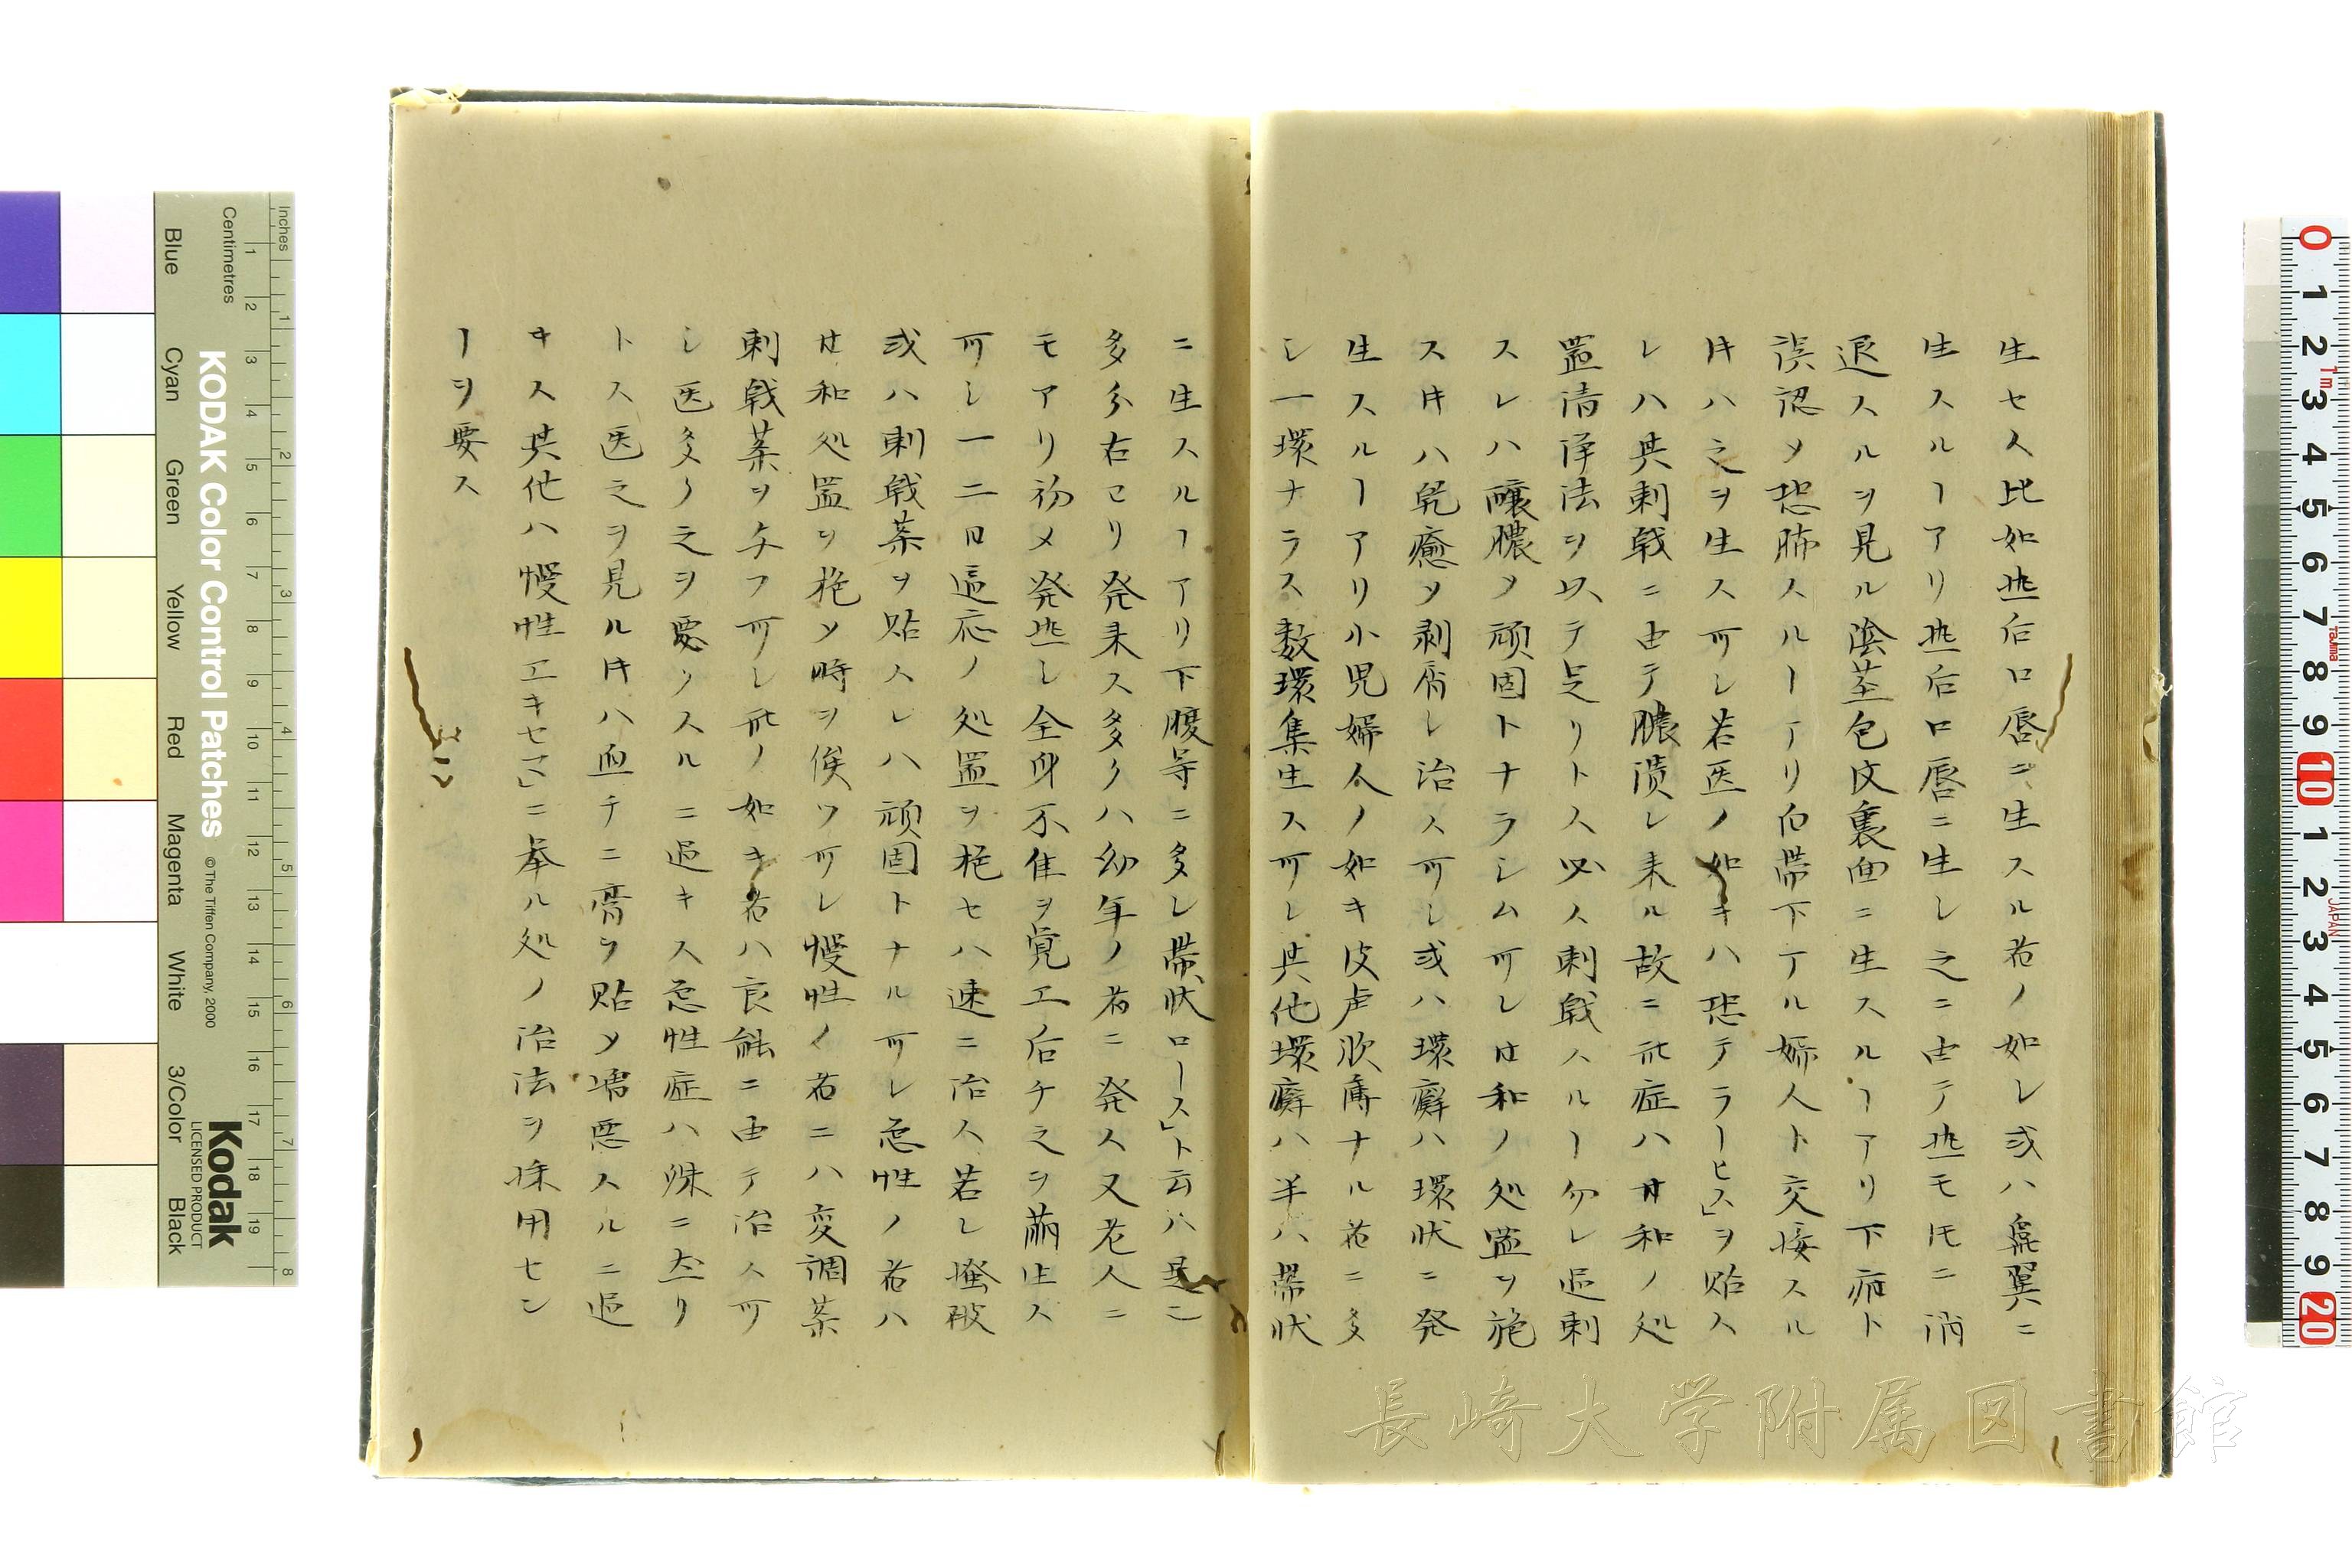 生セス比如熱后口唇ニ生スル者ノ如シ或ハ鼻翼ニ
生スルヿアリ熱后口唇ニ生シ之ニ由テ熱モ㐧ニ消
退スルヲ見ル陰茎包皮裏面ニ生スルヿアリ下疳ト
誤認メ恐怖スルヿアリ白帯下アル婦人ト交接スル
トキハ之ヲ生ス可シ若医ノ如キハ恐テラーヒス」ヲ貼ス
レハ其刺戟ニ由テ膿潰シ来ル故ニ此症ハ甘和ノ処
置清浄法ヲ以テ足リトス必ス刺戟スルヿ勿レ過刺
スレハ醸膿メ頑固トナラシム可シ甘和ノ処置ヲ施
スキハ乾癒メ剥屑シ治ス可シ或ハ環癬ハ環状ニ発
生スルヿアリ小児婦人ノ如キ皮膚軟薄ナル者ニ多
シ一環ナラス数環集生ス可シ其他環癬ハ半ハ帯状
ニ生スルヿアリ下腹等ニ多シ帯状ロース」ト云ハ是ニ
多分右ヨリ発来ス多クハ幼年ノ者ニ発ス又老人ニ
モアリ初メ発熱シ全身不佳ヲ覚エ后チ之ヲ萠生ス
可シ一二日適応ノ処置ヲ施セハ速ニ治ス若シ掻破
或ハ刺戟薬ヲ貼スレハ頑固トナル可シ急性ノ者ハ
甘和処置ヲ施メ時ヲ俟ツ可シ慢性ノ者ニハ変調薬
刺戟薬ヲ与フ可シ此ノ如キ者ハ良能ニ由テ治ス可
シ医多ク之ヲ要ツスルニ過キス急性症ハ殊ニ然リ
トス医之ヲ見ルキハ血チニ膏ヲ貼メ増悪スルニ過
キス其他ハ慢性エキセマ」ニ挙ル処ノ治法ヲ採用セン
ヿヲ要ス
KODAK Color Control Patches
©The Tiffen Company, 2000
Kodak
LICENSED PRODUCT
Inches
Centimetres
Blue
Cyan
Green
Yellow
Red
Magenta
White
3/Color
Black
長崎大学附属図書館